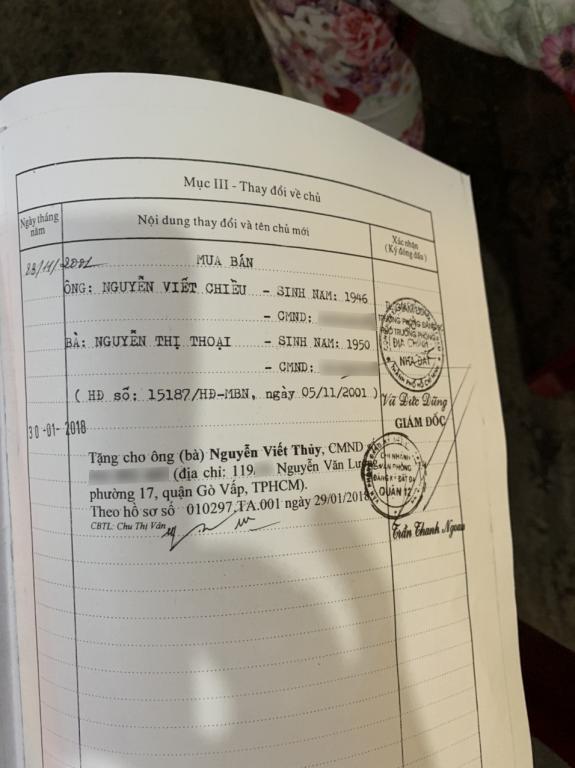 Mục III - Thay đổi về chủ
Ngày tháng năm
Nội dung thay đổi và tên chủ mới
Xác nhận
(Ký đóng dấu)
23/11/2001
MUA BÁN
ÔNG: NGUYỄN VIẾT CHIỀU - SINH NĂM: 1946
- CMND:
BÀ: NGUYỄN THỊ THOẠI - SINH NĂM: 1950
- CMND:
( HĐ số: 15187/HĐ-MBN, ngày 05/11/2001 )
ĐỊA CHÍNH
NHÀ ĐẤT
THÀNH PHỐ HỒ CHÍ MINH
Vũ Đức Dũng
30 -01- 2018
GIÁM ĐỐC
Tặng cho ông (bà) Nguyễn Viết Thủy, CMND
(địa chỉ: 119 Nguyễn Văn
phường 17, quận Gò Vấp, TPHCM).
Theo hồ sơ số 010297.TA.001 ngày 29/01/2018
CBTL: Chu Thị Vân
CHI NHÁNH
VĂN PHÒNG
ĐĂNG KÝ ĐẤT ĐAI
QUẬN 12
Trần Thanh